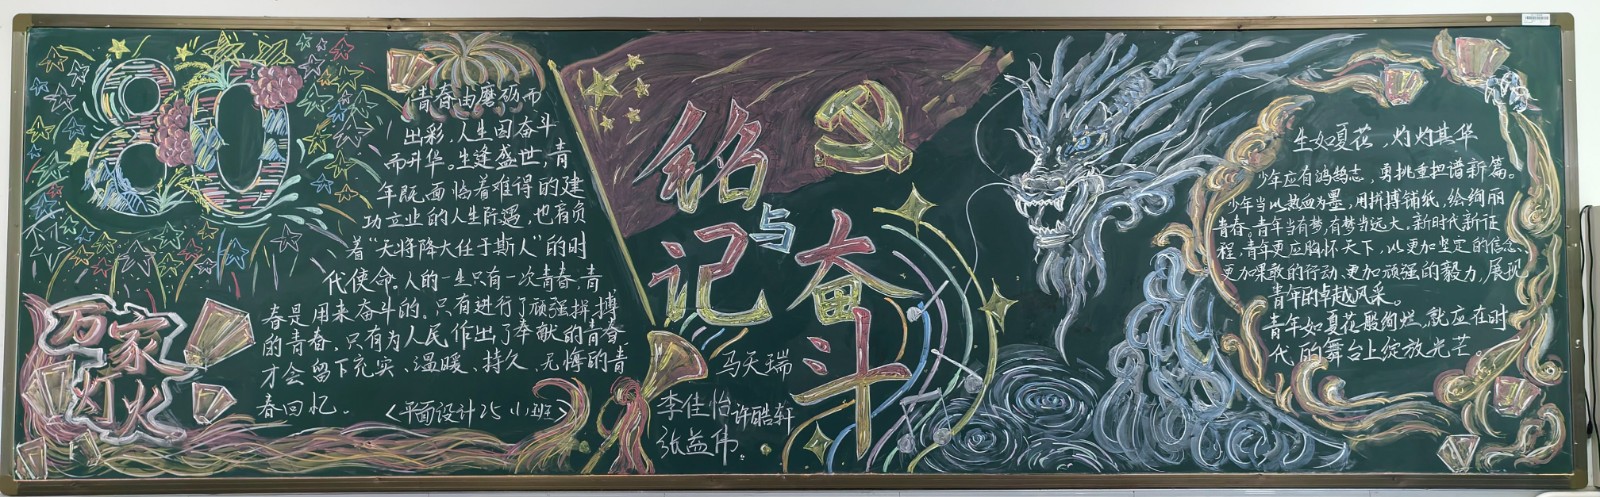 80
万家
灯火
青春由磨砺而
出彩,人生因奋斗
而升华。生逢盛世,青
年既面临着难得的建
功立业的人生际遇,也肩负
着“天将降大任于斯人”的时
代使命。人的一生只有一次青春,青
春是用来奋斗的。只有进行了顽强拼搏
的青春,只有为人民作出了奉献的青春
才会留下充实、温暖、持久、无悔的青
春回忆。
<平面设计25(1)班>
铭
记
与
奋
斗
马天瑞
李佳怡 许皓轩
张益伟
生如夏花,灼灼其华
少年应有鸿鹄志,勇挑重担谱新篇。
少年当以热血为墨,用拼搏铺纸,绘绚丽
青春。青年当有梦,有梦当远大。新时代新征
程,青年更应胸怀天下,以更加坚定的信念、
更加果敢的行动、更加顽强的毅力,展现
青年的卓越风采。
青年如夏花般绚烂,就应在时
代的舞台上绽放光芒。